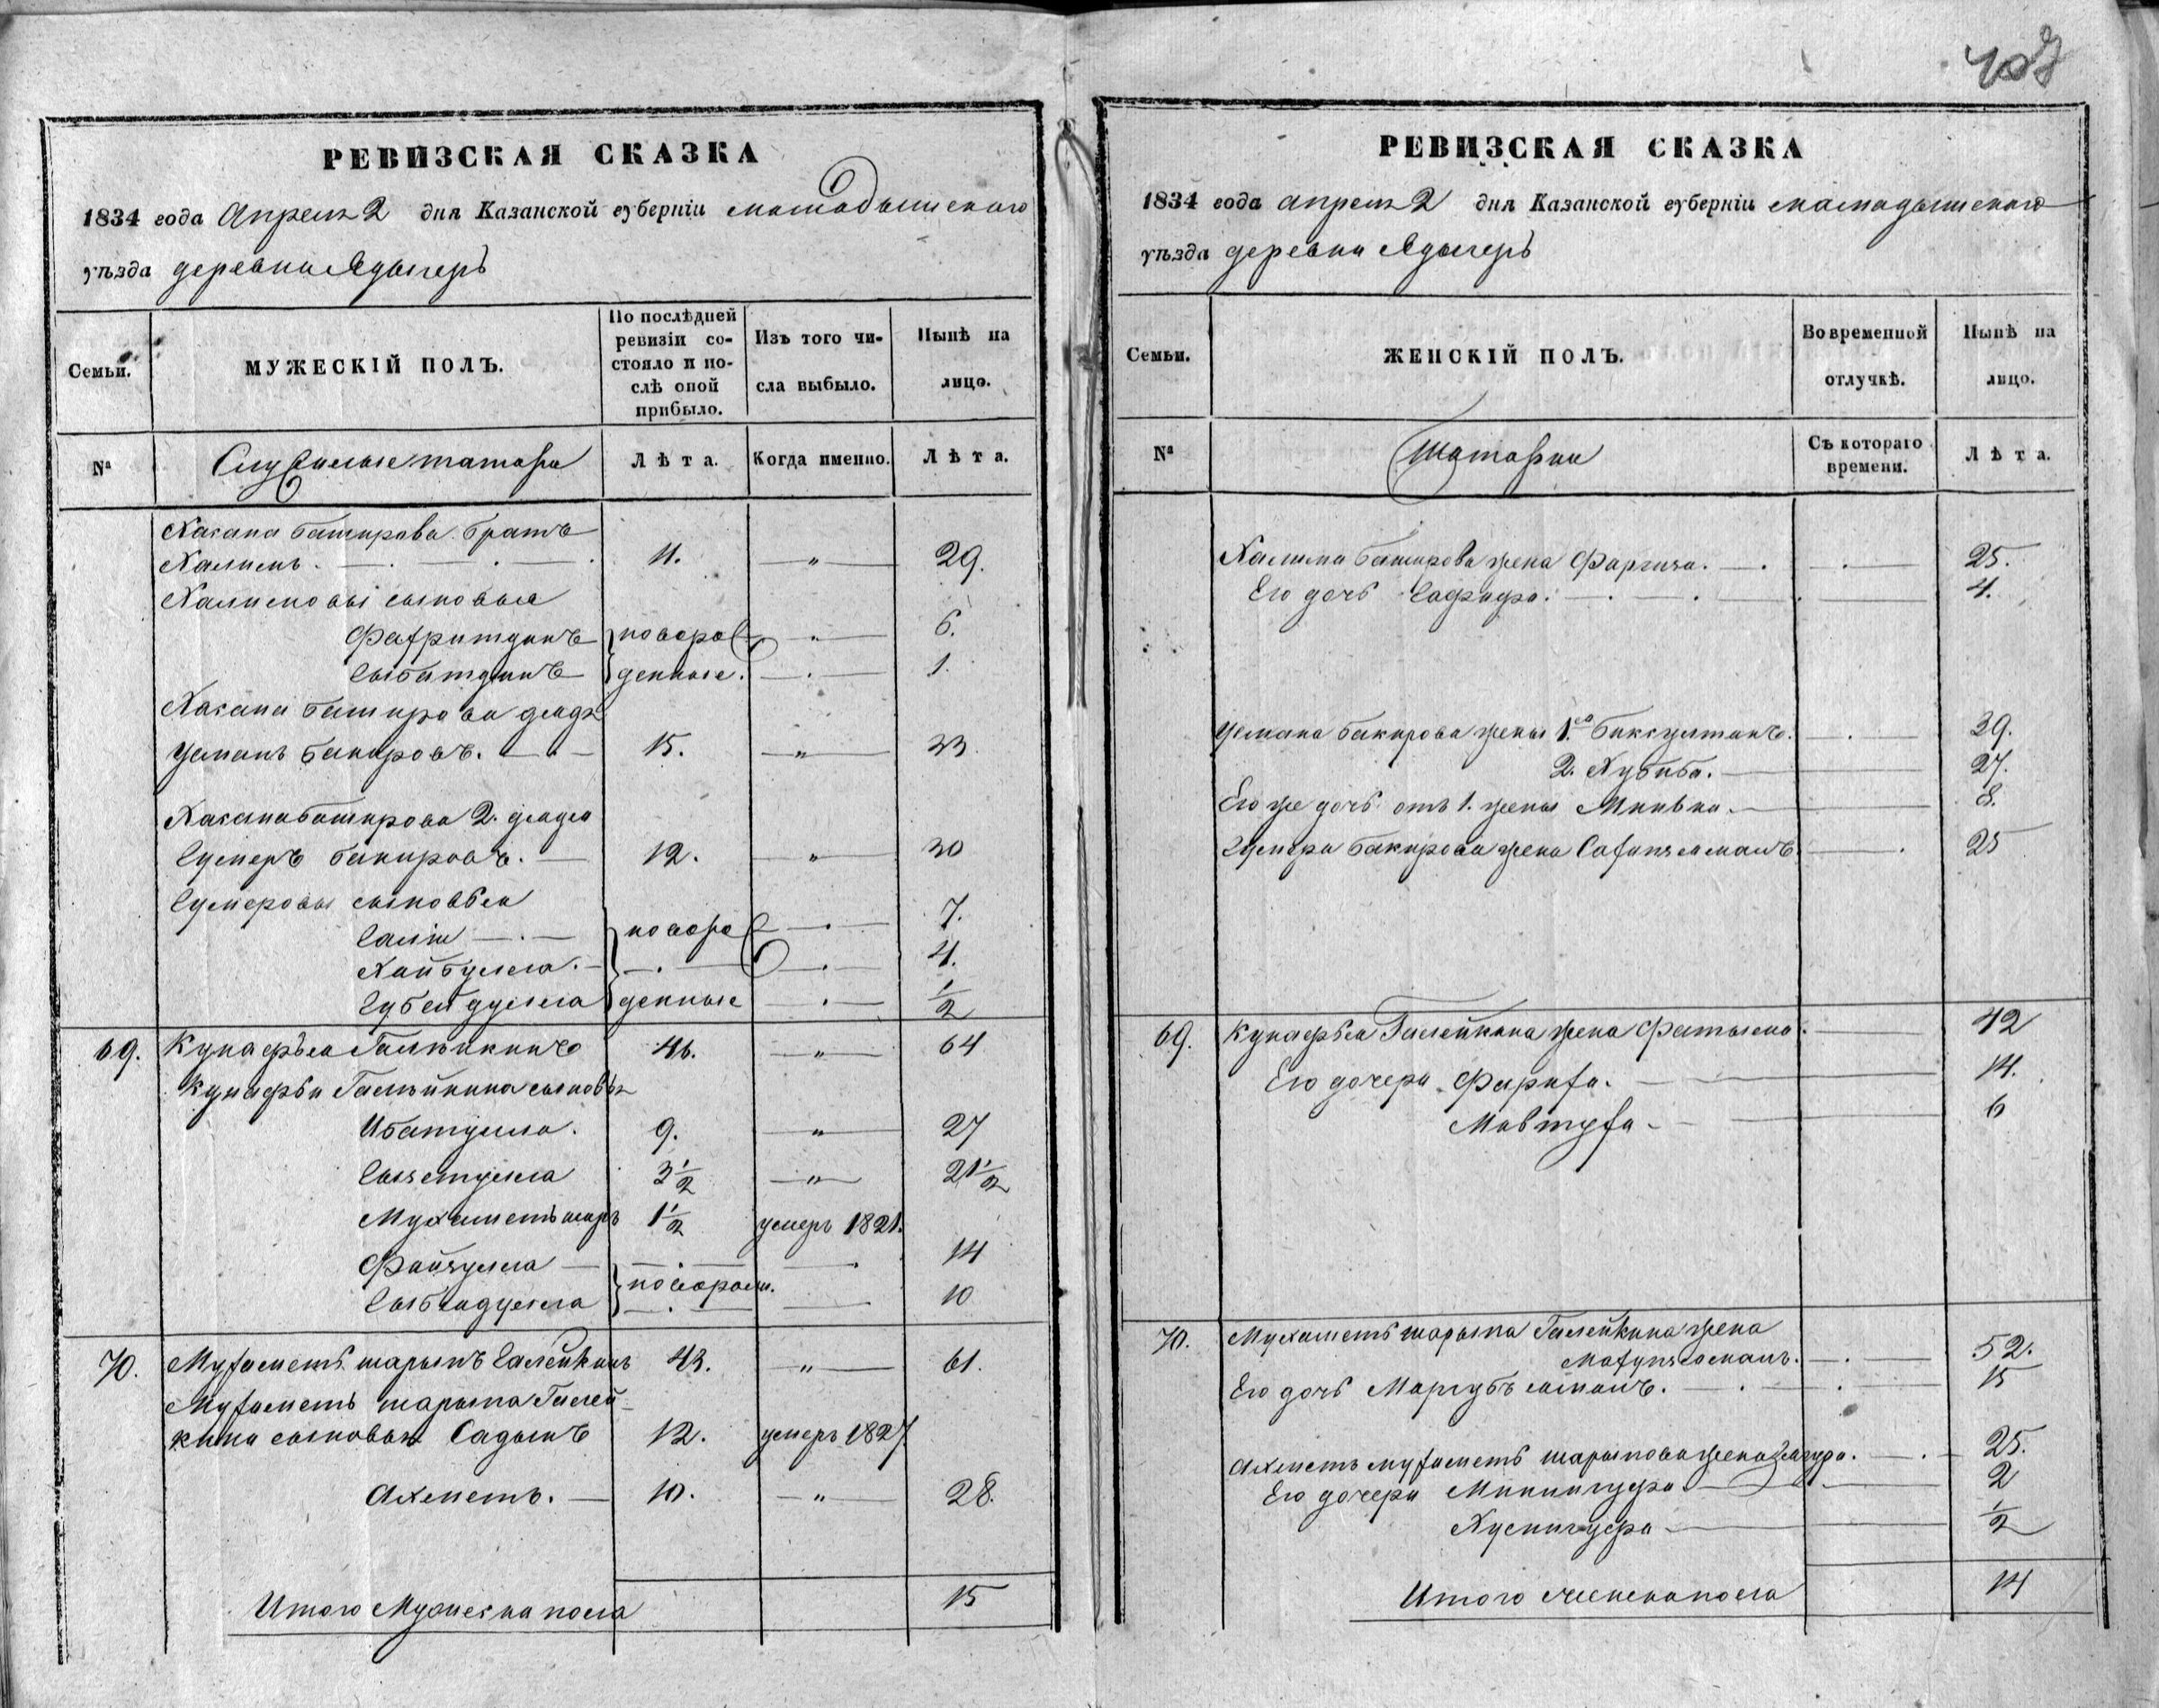 407
РЕВИЗСКАЯ СКАЗКА
1834 года Апреля 2 дня Казанской губерніи мамадышскаго
уѣзда деревни Ядыгеръ
Семьи.
МУЖЕСКІЙ ПОЛЪ.
По послѣдней ревизіи со-
стояло и по-
слѣ оной
прибыло.
Изъ того чи-
сла выбыло.
Нынѣ на
лицо.
№
Служилые татары
Лѣта.
Когда именно.
Лѣта.
Хасана Баширова братъ
Халимъ. 11. " 29.
Халимовы сыновья
Фахритдинъ новоро " 6.
денные. 1.
Хасана Баширова дядя
Усманъ Бакировъ. 15. " 33
Хасана Баширова 2. дядя
Сумеръ Бакировъ. 12. " 30
Сумеровы сыновья
Салій новоро 7.
Хайбулла. 4.
Субейдулла денные 1/2
69. Кунафья Галѣйкинъ 46. " 64
Кунафьи Галѣйкина сыновья
Ибатулла. 9. " 27
3 1/2 " 21 1/2
Мухаметшаръ 1 1/2 умеръ 1821.
Файзулла 14
новорож.
Сыбядулла 10
70. Мухаметъ шарыпъ Галейкинъ 43. " 61.
Мухаметь шарыпа Галей-
кина сыновья Садыкъ 12. умеръ 1827
Ахметъ. 10. " 28.
Итого Мужеска пола 15
РЕВИЗСКАЯ СКАЗКА
1834 года апреля 2 дня Казанской губерніи мамадышскаго
уѣзда деревни Ядыгеръ
Семьи.
ЖЕНСКІЙ ПОЛЪ.
Во временной
отлучкѣ.
Нынѣ на
лицо.
№
татарки
Съ котораго
времени.
Лѣта.
Халима Баширова жена 25.
Его дочь 4.
Усмана Бакирова жены 1.я Биксултанъ. 39.
2. Хубиба. 27.
Его же дочь отъ 1. жены 8.
Сумера Бакирова жена 25
69. Кунафья Галейкина жена Фатыма. 42
Его дочери Фариха. 14.
Мавтуха 6
70. Мухаметь шарыпа Галейкина жена
52.
Его дочь Маргубъ 15
Ахметь мухаметь шарыпова жена 25.
Его дочери 2
1/2
Итого женска пола 14